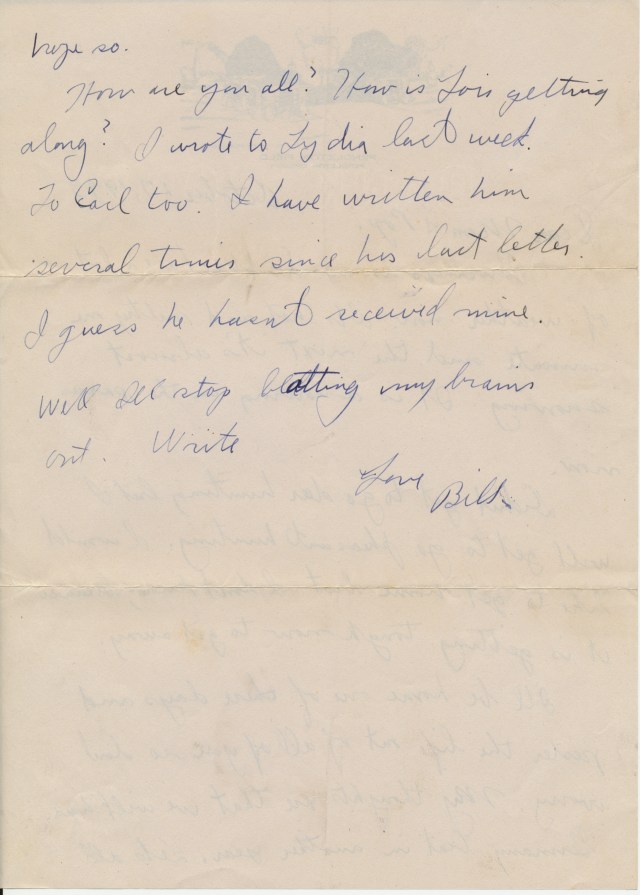 hope so.
How are you all? How is Lois getting
along? I wrote to Lydia last week.
To Carl too. I have written him
several times since his last letter.
I guess he hasn't received mine.
Well I'll stop batting my brains
out. Write
Love
Bill.